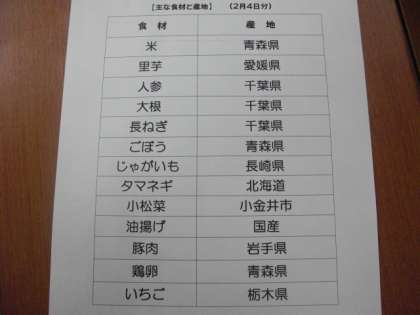 【主な食材と産地】　（2月4日分）
食　材　産　地
米　青森県
里芋　愛媛県
人参　千葉県
大根　千葉県
長ねぎ　千葉県
ごぼう　青森県
じゃがいも　長崎県
タマネギ　北海道
小松菜　小金井市
油揚げ　国産
豚肉　岩手県
鶏卵　青森県
いちご　栃木県